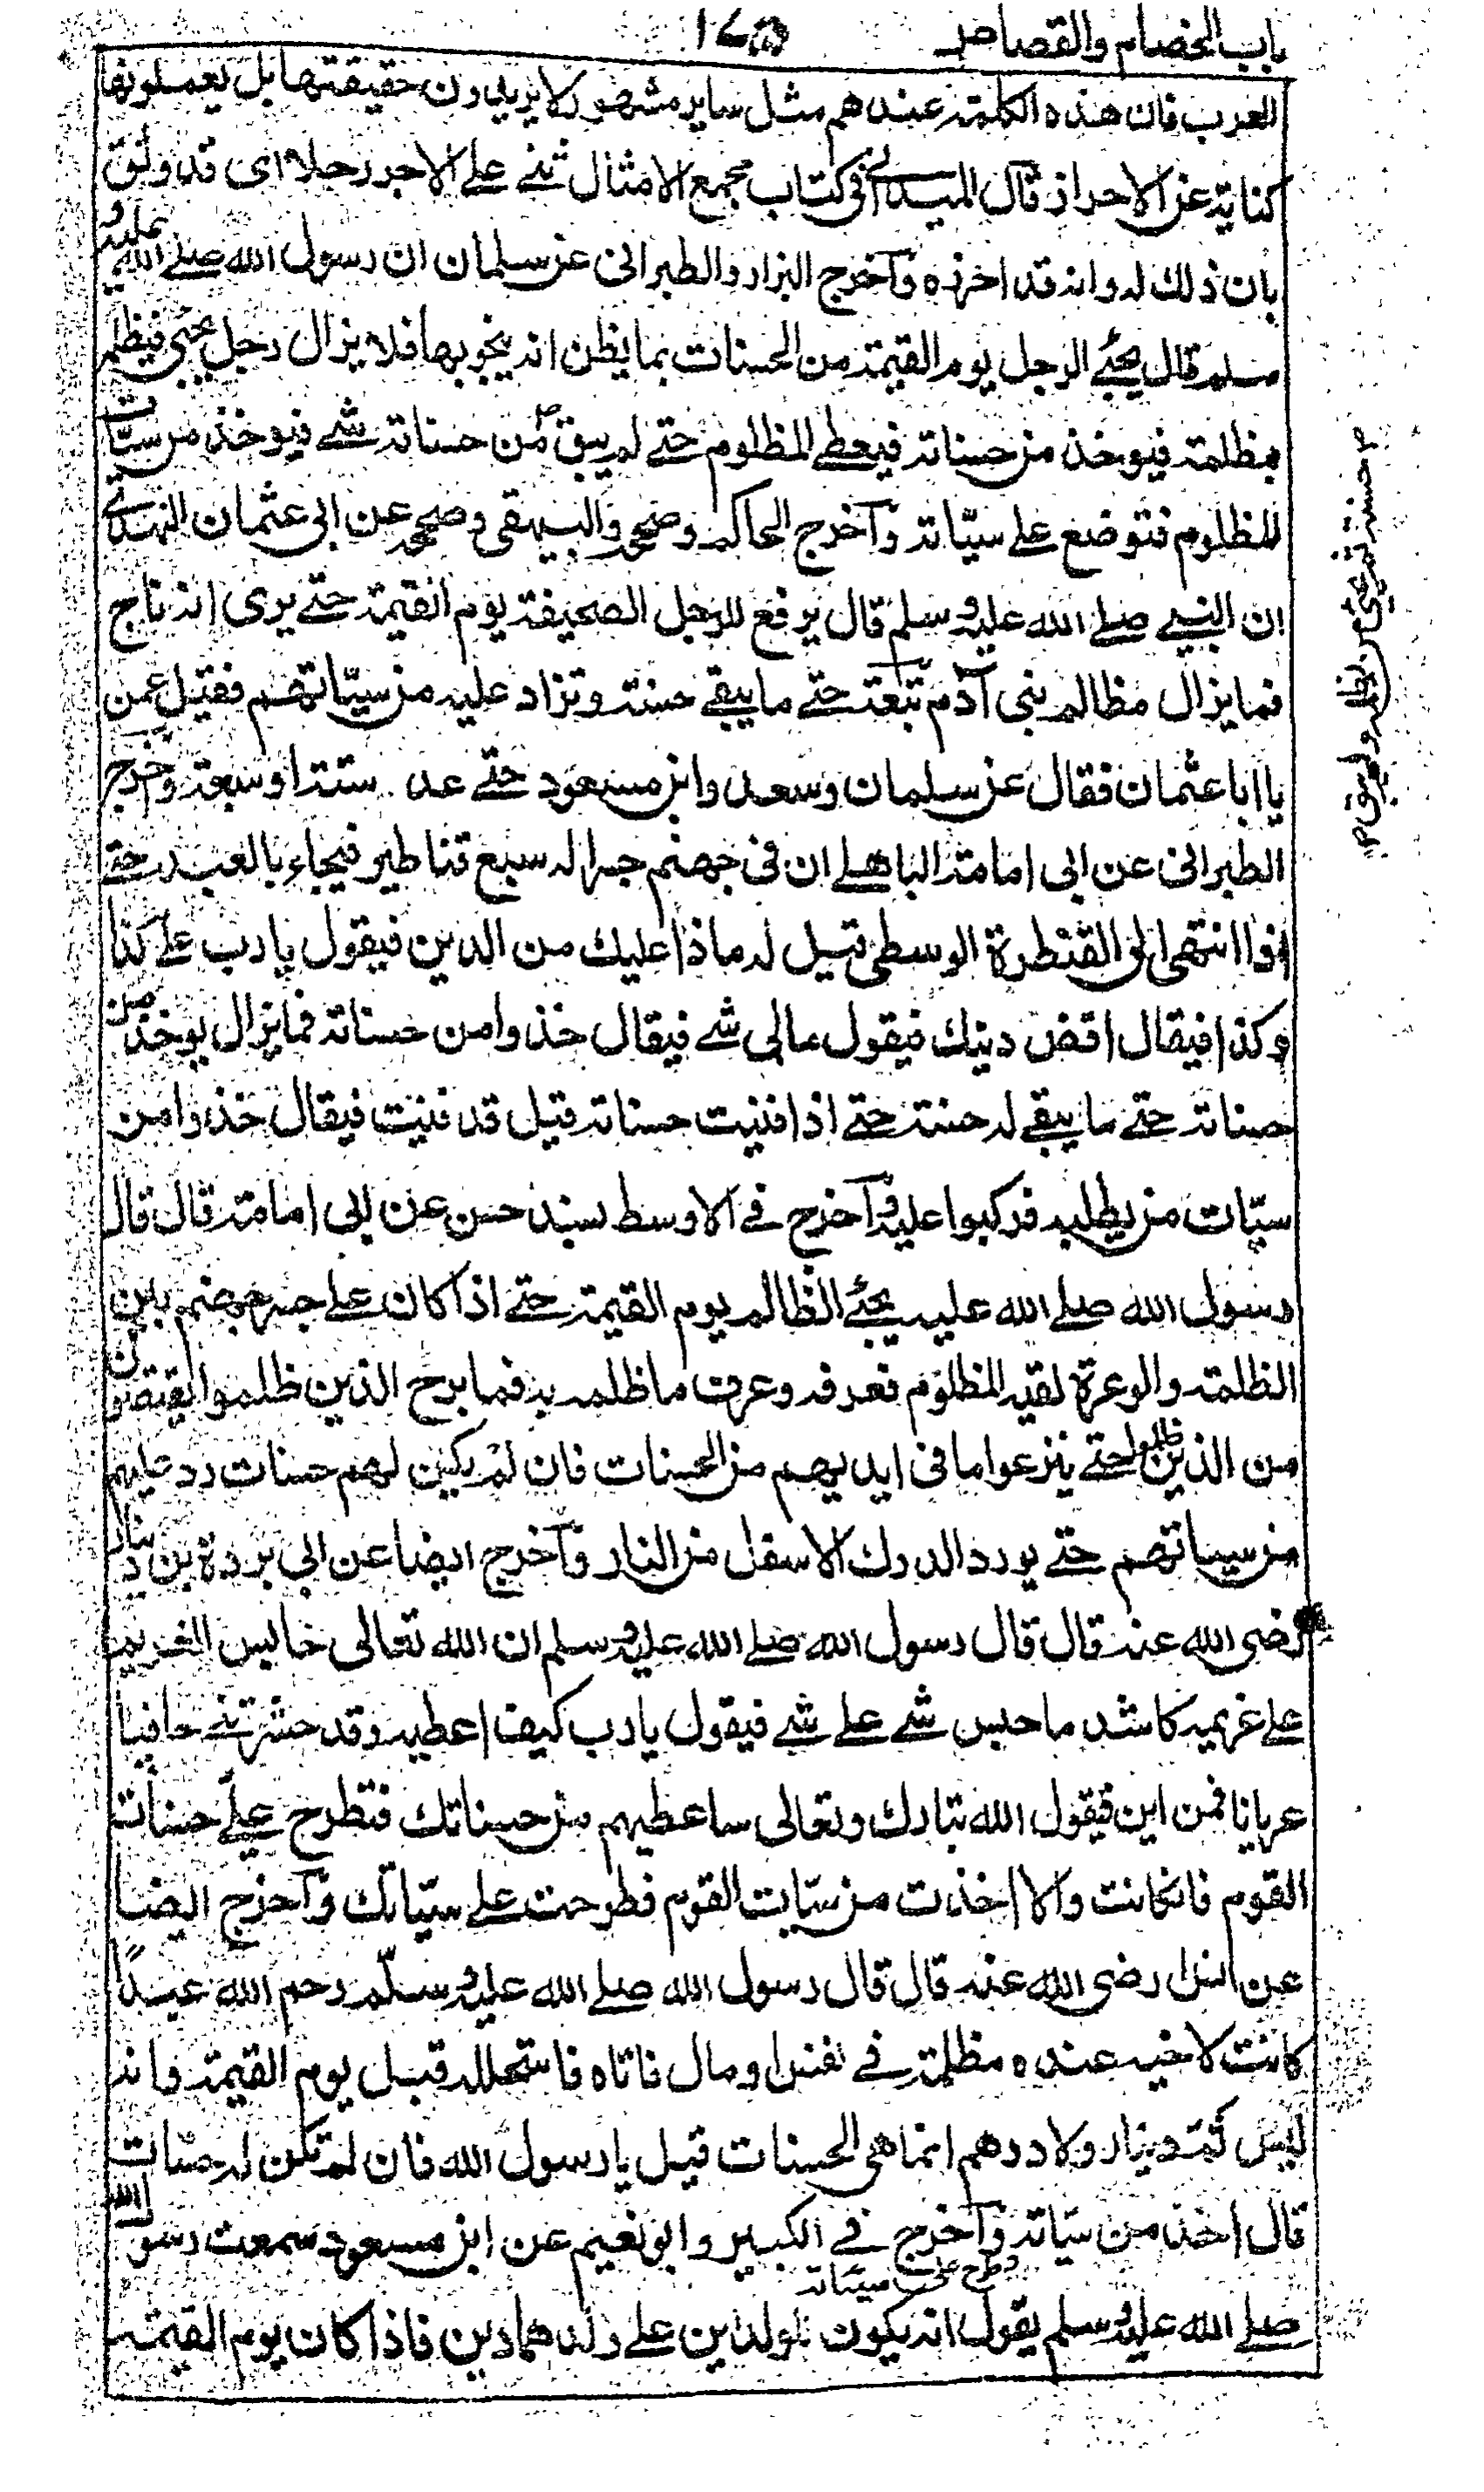 باب الخصام والقصاص
١٧٥
العرب فان هذه الكلمة عندهم مثل ساير مشهور لا يريدون حقيقتها بل يعملونها
كناية عن الاحراز قال الميداني في كتاب مجمع الامثال ثنى على الاجر رحلا اى قد وثق
بان ذلك له وانه قد احرزه وآخرج البزار والطبرانى عن سلمان ان رسول الله صلے الله عليه و
سلم قال يجئ الرجل يوم القيمة من الحسنات بما يظن انه ينجو بها فلا يزال رجل يجئ فيظلم
بظلمة فيوخذ من حسناته فيعطے المظلوم حتے لم يبق من حسناته شے فيوخذ من سيّات
المظلوم فتوضع على سيّاته وآخرج الحاكم وصححه والبيهقى وصححه عن ابى عثمان النهدى
ان النبے صلے الله عليه وسلم قال يرفع للرجل الصحيفة يوم القيمة حتے يرى انه ناج
فما يزال مظالم بنى آدم تتبعته حتے ما يبقے حسنة وتزاد عليه من سيّاتهم فقيل عمن
يا ابا عثمان فقال عن سلمان وسعد وابن مسعود حتے عد ستة او سبعة وخرج
الطبرانى عن ابى امامة الباهلے ان فى جهنم جسرا له سبع قناطير فيجاء بالعبد حتے
اذا انتهى الى القنطرة الوسطى قيل له ماذا عليك من الدين فيقول يا رب علے كذا
وكذا فيقال اقض دينك فيقول مالى شے فيقال خذوا من حسناته فما يزال يوخذ من
حسناته حتے ما يبقے له حسنة حتے اذا فنيت حسناته قيل قد فنيت فيقال خذوا من
سيّات من يطلبه فركبوا عليه وآخرج فے الاوسط بسند حسن عن ابى امامة قال قال
رسول الله صلے الله عليه يجئے الظالم يوم القيمة حتے اذا كان علے جسر جهنم بين
الظلمة والوعرة لقيه المظلوم فعرفه وعرف ما ظلمه به فما برح الذين ظلموا يقتصون
من الذين ظلموا حتے ينزعوا ما فى ايديهم من الحسنات فان لم يكن لهم حسنات رد عليهم
من سياتهم حتے يورد الدرك الاسفل من النار وآخرج ايضا عن ابى بردة بن دينار
رضى الله عنه قال قال رسول الله صلے الله عليه وسلم ان الله تعالى حابس الغريم
علے غريمه كاشد ما حبس شے علے شے فيقول يا رب كيف اعطيه وقد حشرتنے حافيا
عريانا فمن اين فيقول الله تبارك وتعالى ساعطيهم من حسناتك فتطرح علے حسنات
القوم فان كانت والا اخذت من سيّات القوم فطرحت علے سيّاتك وآخرج ايضا
عن انس رضى الله عنه قال قال رسول الله صلے الله عليه وسلّم رحم الله عبدًا
كانت لاخيه عنده مظلمة فے نفس او مال فاتاه فاستحلله قبل يوم القيمة فانه
ليس ثمة دينار ولا درهم انما هى الحسنات قيل يا رسول الله فان لم تكن له حسنات
قال اخذ من سيّاته وآخرج فے الكبير وابو نعيم عن ابن مسعود سمعت رسول الله
وطرح على سيئاته
صلے الله عليه وسلم يقول انه يكون للوالدين علے ولدهما دين فاذا كان يوم القيمة
حسنة ثم يجئ من يظلم ولم يبق